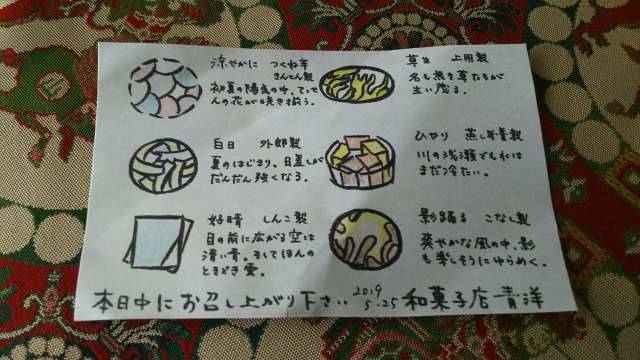 涼やかに つくね芋
きんとん製
初夏の陽気の中、ていて
んの花が咲き揃う。
草生 上用製
名も無き草たちが
生い茂る。
白日 外郎製
夏のはじまり。日差しが
だんだん強くなる。
ひやり 蒸し羊羹製
川の浅瀬でも水は
まだ冷たい。
好晴 しんこ製
目の前に広がる空は
清い青。そしてほんの
ときどき雲。
影踊る こなし製
爽やかな風の中、影
も楽しそうにゆらめく。
本日中にお召し上がり下さい 2019
5.25 和菓子店 青洋